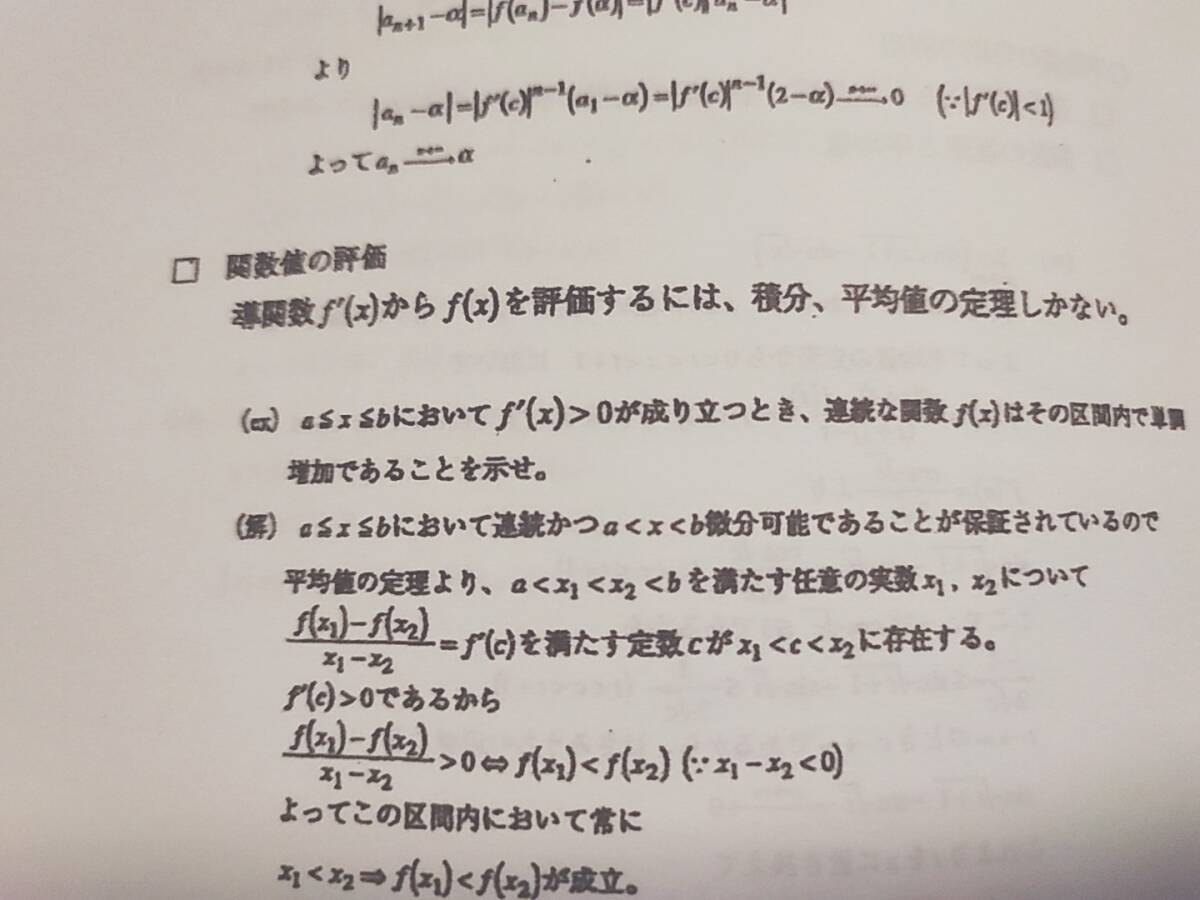 |aₙ₊₁−α|=|f(aₙ)−f(α)|=|f′(c)||aₙ−α|
より
|aₙ−α|=|f′(c)|ⁿ⁻¹(a₁−α)=|f′(c)|ⁿ⁻¹(2−α) ⟶ 0 (∵|f′(c)|<1)
よって aₙ ⟶ α
□ 関数値の評価
導関数 f′(x)から f(x)を評価するには、積分、平均値の定理しかない。
(ex) a≦x≦bにおいて f′(x)>0が成り立つとき、連続な関数 f(x)はその区間内で単調
増加であることを示せ。
(解) a≦x≦bにおいて連続かつ a<x<b微分可能であることが保証されているので
平均値の定理より、a<x₁<x₂<bを満たす任意の実数 x₁, x₂について
f(x₁)−f(x₂)
x₁−x₂
=f′(c)を満たす定数 c が x₁<c<x₂に存在する。
f′(c)>0であるから
f(x₁)−f(x₂)
x₁−x₂
>0⇔f(x₁)<f(x₂) (∵x₁−x₂<0)
よってこの区間内において常に
x₁<x₂⇒f(x₁)<f(x₂)が成立。